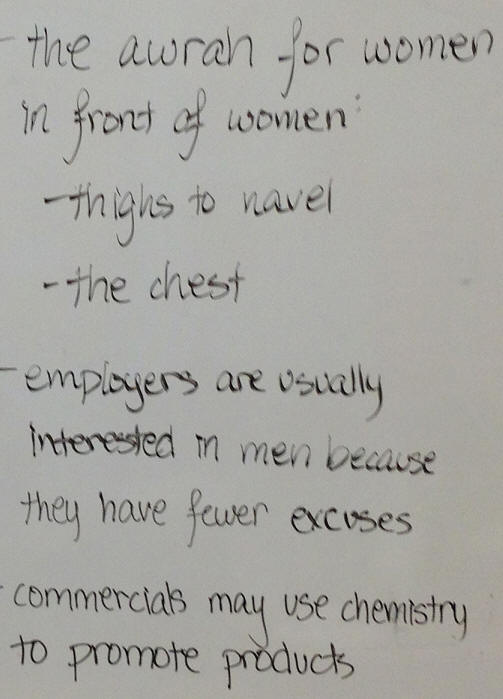 - the awrah for women
in front of women:
- thighs to navel
- the chest
- employers are usually
interested in men because
they have fewer excuses
- commercials may use chemistry
to promote products